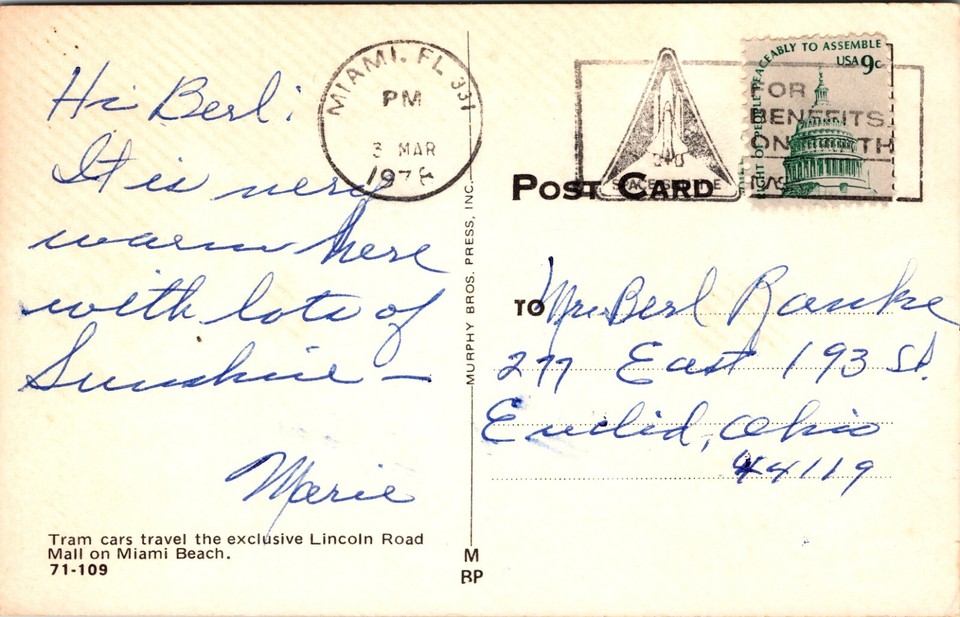 Hi Berl:
It is very
warm here
with lots of
Sunshine —
Marie
Tram cars travel the exclusive Lincoln Road
Mall on Miami Beach.
71-109
MURPHY BROS. PRESS, INC.
M
BP
MIAMI. FL 331
PM
3 MAR
1978
SPACE SHUTTLE
FOR
BENEFITS
ON EARTH
NASA
RIGHT OF PEOPLE PEACEABLY TO ASSEMBLE
USA 9c
POST CARD
TO
Mr. Berl Ranke
277 East 193 St.
Euclid, Ohio
44119